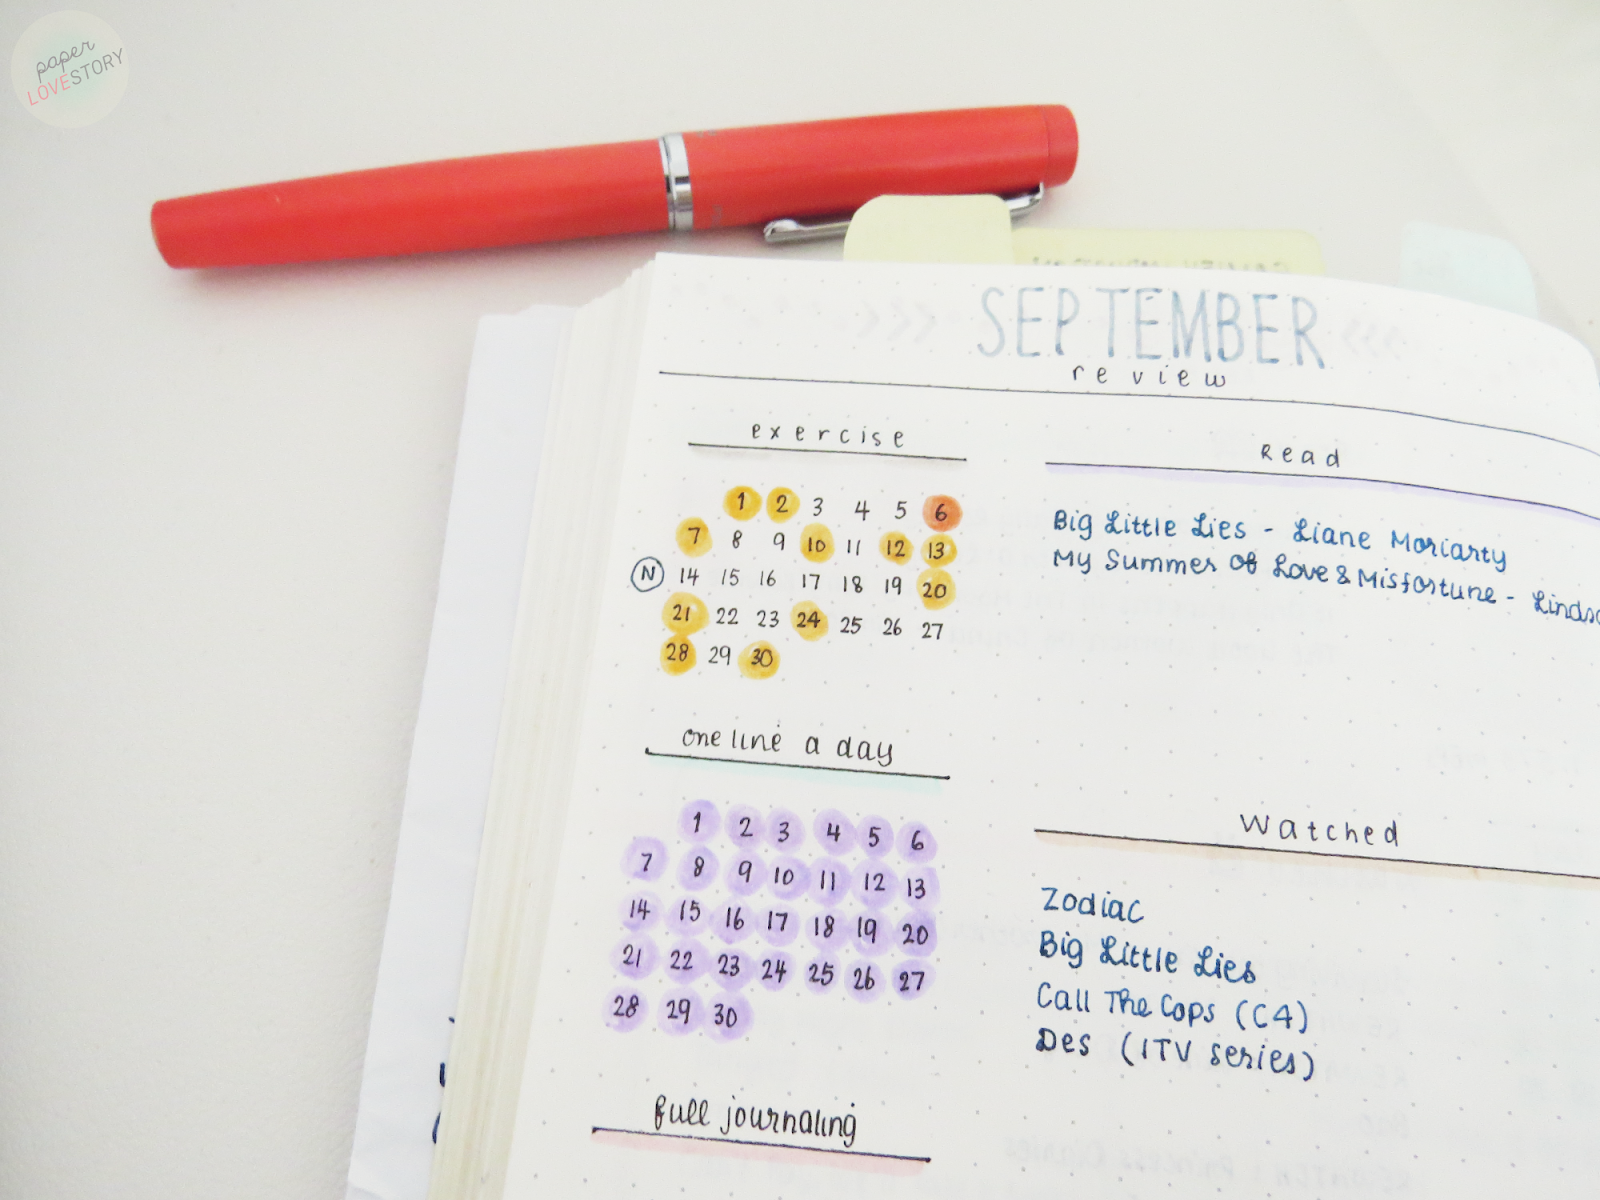 paper
LOVESTORY
SEPTEMBER
review
exercise
1 2 3 4 5 6
7 8 9 10 11 12 13
N 14 15 16 17 18 19 20
21 22 23 24 25 26 27
28 29 30
one line a day
1 2 3 4 5 6
7 8 9 10 11 12 13
14 15 16 17 18 19 20
21 22 23 24 25 26 27
28 29 30
full journaling
Read
Big Little Lies - Liane Moriarty
My Summer of Love & Misfortune - Lindsa
Watched
Zodiac
Big Little Lies
Call The Cops (C4)
Des (ITV series)